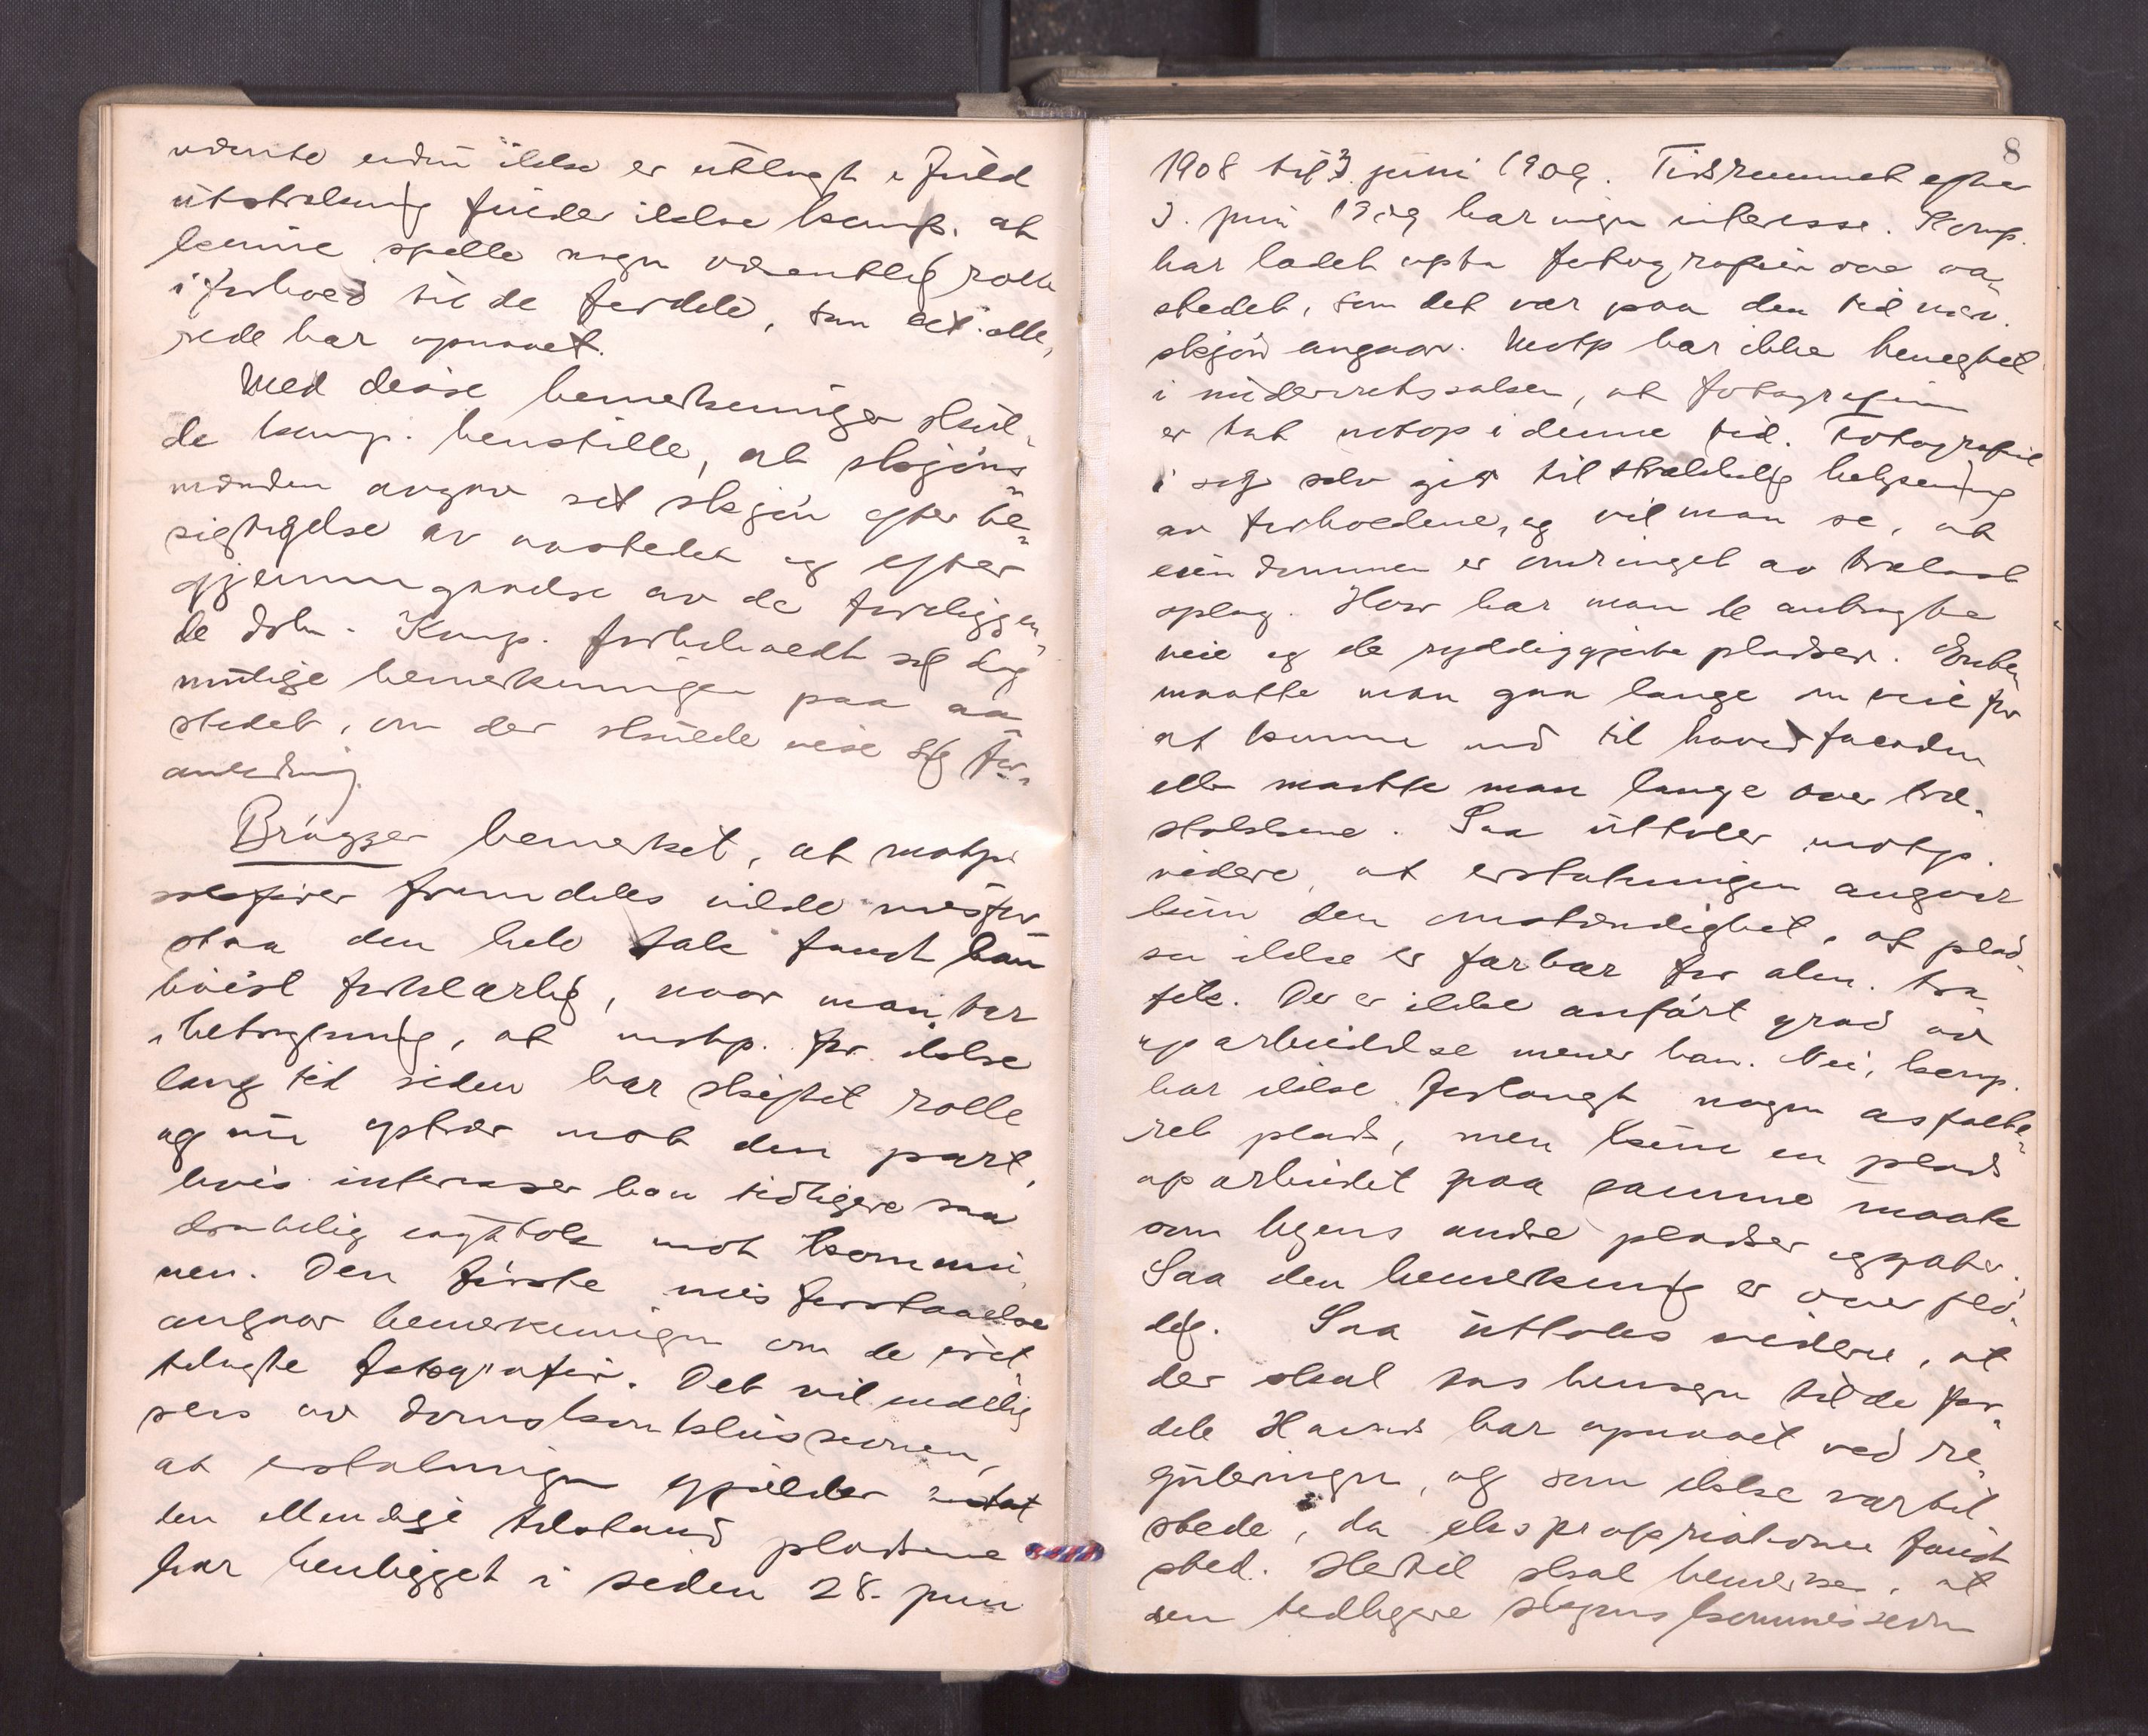 endnu ikke er utlagt i fuld
utstrækning finder ikke komp. at
kunne spille nogen væsentlig rolle
i forhold til de fordele, som alle-
rede har opnaaet.
Med disse bemerkninger skul-
de komp. henstille, at skjøns-
mænden avgav sit skjøn efter be-
sigtigelse av aastedet og efter
gjennemgaaelse av de foreliggen-
de dok. Komp. forbeholdt sig dog
mulige bemerkninger paa aa-
stedet, om der skulde vise sig for-
anledning.
Brügger bemerket, at motp.
fremdeles vilde misfor-
staa den hele sak fandt han
høist forklarlig, naar man tar
i betragtning, at motp. for ikke
lang tid siden har skiftet rolle
og nu optrær mot den part,
hvis interesser han tidligere saa
drabelig mot kommu-
nen. Den første misforstaaelse
angaar bemerkningen om de
fotografier. Det vil nemlig
sees av domskonklusionen,
at erstatningen gjælder
den elendige tilstand pladsene
har henligget i siden 28. juni
8
1908 til 3. juni 1909. Tidsrummet efter
3. juni 1909 har ingen interesse. Komp.
har ladet opta fotografier ove aa-
stedet, som det var paa den tid nærv.
skjøn angaar. Motp har ikke benegtet
i underretssaken, at fotografiene
er tat netop i denne tid. Fotografiene
i sig selv gir tilstrækkelig belysning
av forholdene, og vil man se, at
eiendommen er omringet av trælast
oplag. Hvor har man de anbragte
veie og de ryddiggjorte pladser. Enten
maatte man gaa lange omveie for
at kunne naa til hovedfacaden
eller maatte man lange over træ-
stablene. Saa uttaler motp.
videre, at erstatningen angaar
kun den omstændighet, at plad-
sen ikke er farbar for alm. tra-
fik. Der er ikke anført grad av
oparbeidelse mener han. Nei, komp.
har ikke forlangt nogen asfalte-
ret plads, men kun en plads
oparbeidet paa samme maate
som byens andre pladser og gater.
Saa den bemerkning er overflø-
dig. Saa uttales videre, at
der skal tas hensyn til de for-
dele har opnaaet ved re-
guleringen, og som ikke var til
stede, da ekspropriationen fandt
sted. Hertil skal bemerkes, at
den tidligere skjønskommission